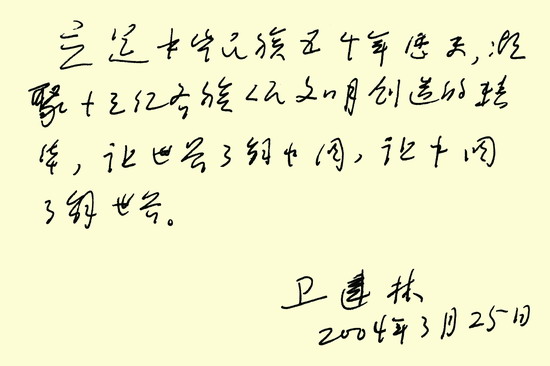 立足中华民族五千年历史,凝
聚十三亿各族人民文明创造的精
华,让世界了解中国,让中国
了解世界。
卫建林
2004年3月25日